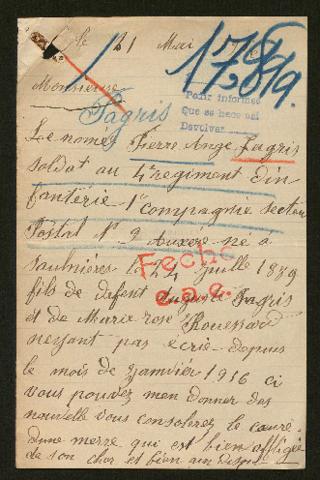 le 21 Mai
17819.
Monsieur
Pour informes
Que se hace así
Devolver
Fagris
Le nomé Pierre Ange Fagris
soldat au 4e regiment din
fantérie 1e compagnie secteur
Postal N° 9 Auxere né a
Saulnières le 24 Juille 1889
Feche
c.a.e.
fils de defent Auguste Fagris
et de Marie rose Rouessard
neyant pas écrie depuis
le mois de Janvier 1916 ci
vous pouvez men donner des
nouvelle vous consolerez le cœure
dune merre qui est bien affligée
de son cher et bien